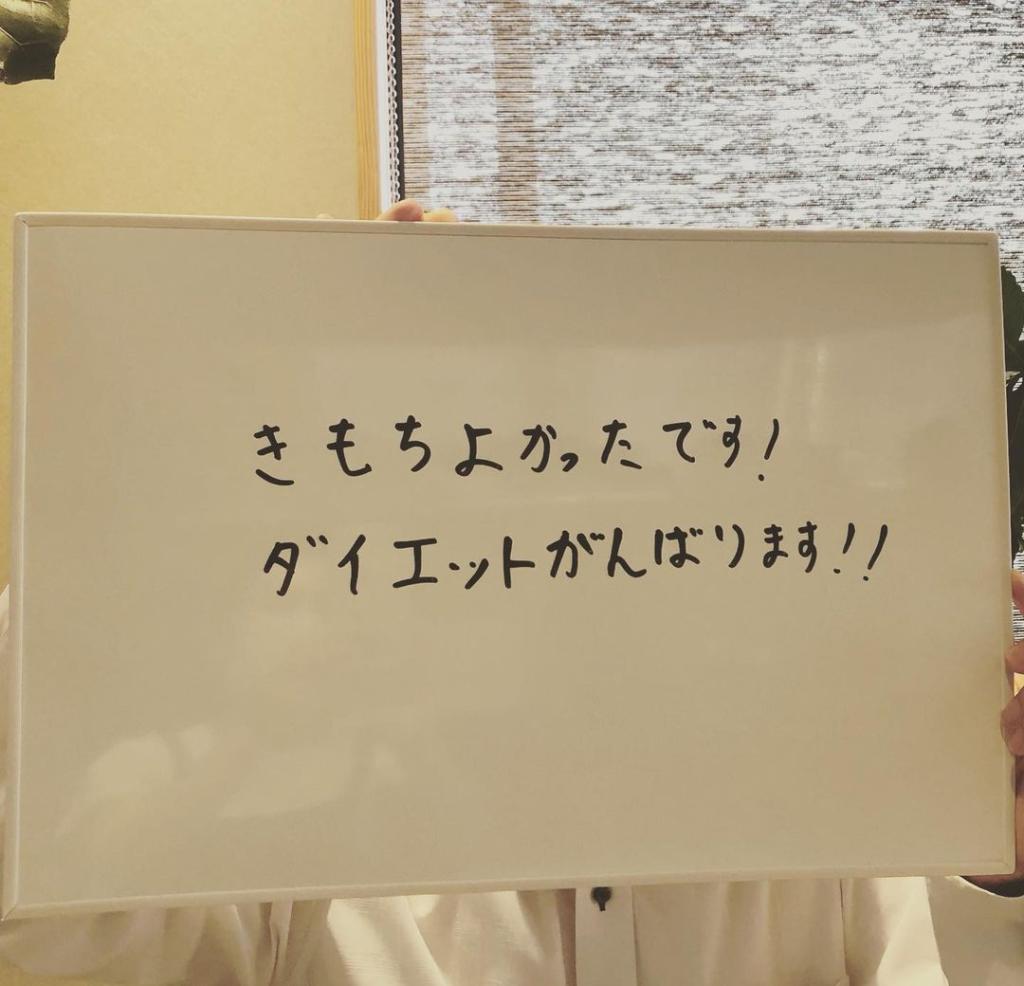 きもちよかったです!
ダイエットがんばります!!